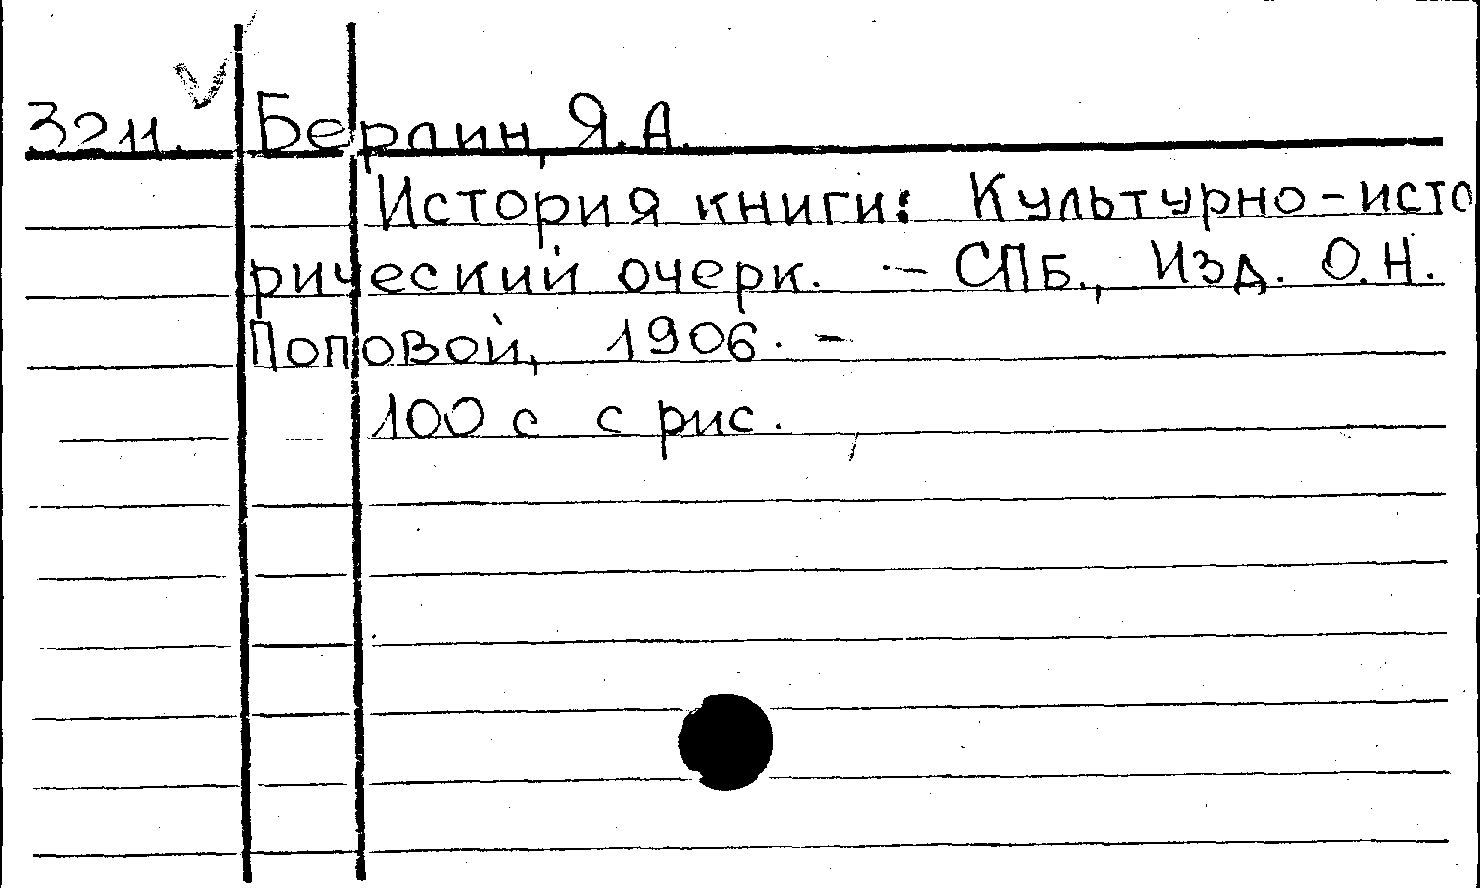 3211. Берлин, Я.А.
История книги: Культурно-исто
рический очерк. - СПБ., Изд. О.Н.
Поповой, 1906. -
100 с с рис.